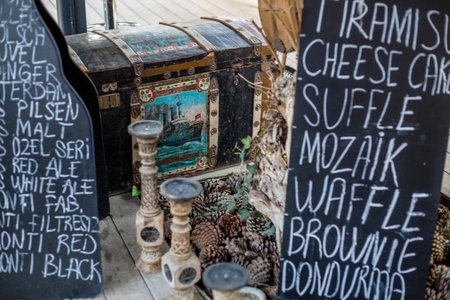 UVEL
NGER
TERDAN
PILSEN
MALT
ÖZEL SERİ
RED ALE
WHITE ALE
NTI FAB.
NTI FILTRES
MONTI RED
ONTI BLACK
TIRAMISU
CHEESE CAK
SUFLE
MOZAİK
WAFFLE
BROWNIE
DONDURMA